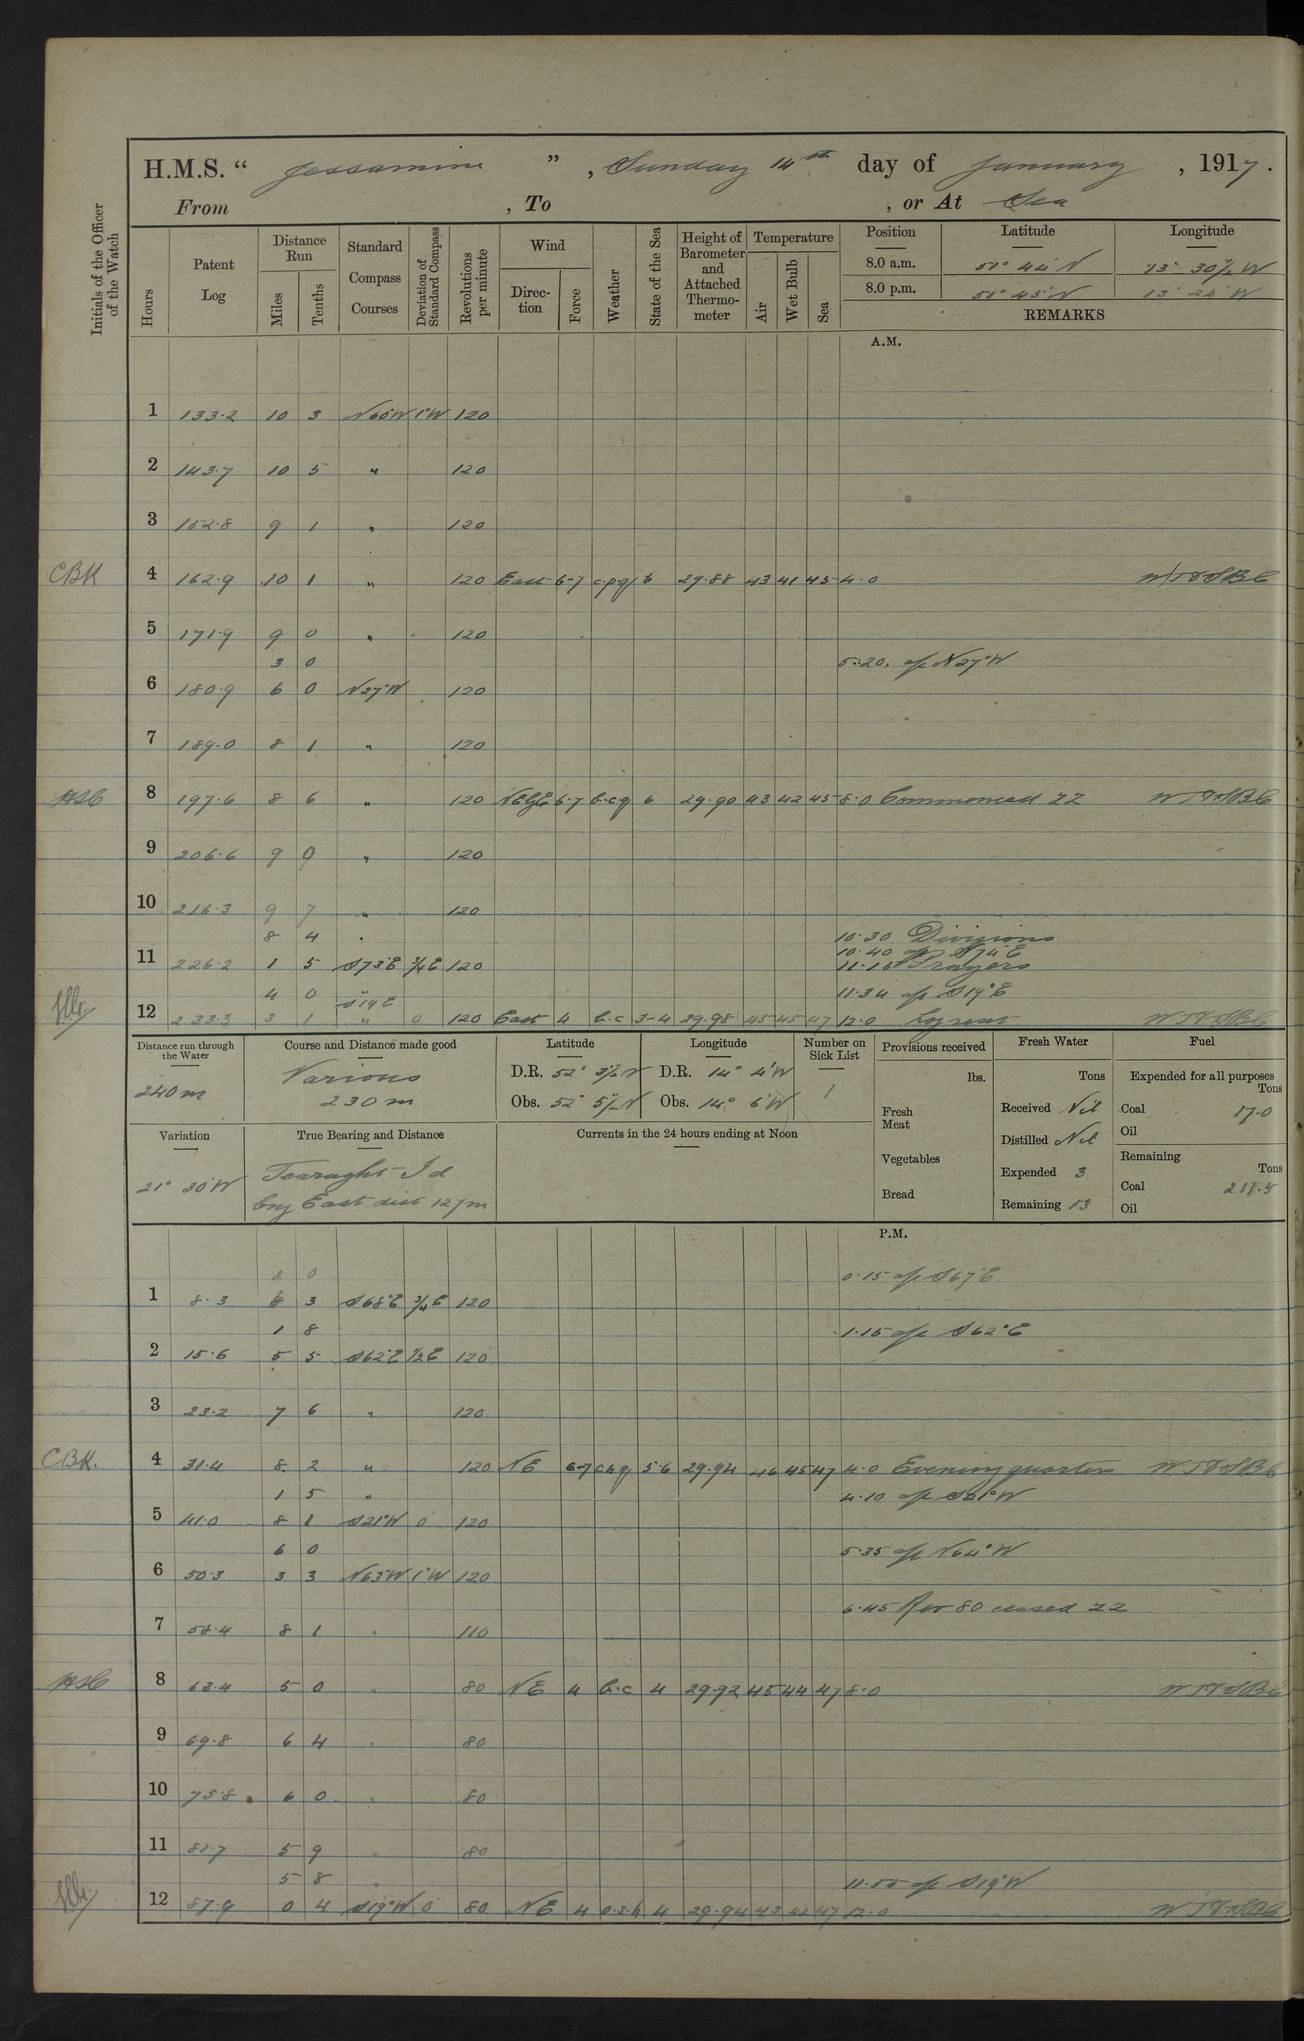 H.M.S. “ Jessamine ”, Sunday 14th day of January, 1917.
From , To , or At Sea
Initials of the Officer of the Watch
Hours
Patent Log
Distance Run
Miles
Tenths
Standard Compass Courses
Deviation of Standard Compass
Revolutions per minute
Wind
Direction
Force
Weather
State of the Sea
Height of Barometer and Attached Thermometer
Temperature
Air
Wet Bulb
Sea
Position Latitude Longitude
8.0 a.m. 51° 44' N 13° 30½ W
8.0 p.m. 51° 45' N 13° 24' W
REMARKS
A.M.
1 133.2 10 3 N60W 1°W 120
2 143.7 10 5 " 120
3 152.8 9 1 " 120
CBK 4 162.9 10 1 " 120 East 6-7 c.p.q 6 29.88 43 41 45 4.0
5 171.9 9 0 " 120
3 0 5.20. a/c N27°W
6 180.9 6 0 N27°W 120
7 189.0 8 1 " 120
8 197.6 8 6 " 120 NE½E 6-7 b.c.q 6 29.90 43 42 45 8.0 Commenced ZZ
9 206.6 9 0 " 120
10 216.3 9 7 " 120
8 4 10.30 Divisions
10.40 a/c S74°E
11 226.2 1 5 S73°E ¾E 120 11.15 Prayers
4 0 11.34 a/c S19°E
S19E
12 233.3 3 1 " 0 120 East 4 b.c 3-4 29.98 45 45 47 12.0 Log reset
Distance run through the Water
240m
Course and Distance made good
Various
230m
Latitude
D.R. 52° 3½ N
Obs. 52° 5½ N
Longitude
D.R. 14° 4'W
Obs. 14° 6'W
Number on Sick List
1
Provisions received
lbs.
Fresh Meat
Vegetables
Bread
Fresh Water
Tons
Received Nil
Distilled Nil
Expended 3
Remaining 13
Fuel
Expended for all purposes
Tons
Coal 17.0
Oil
Remaining
Tons
Coal 218.5
Oil
Variation
21° 30'W
True Bearing and Distance
Tearaght Id
brg East dist 127m
Currents in the 24 hours ending at Noon
P.M.
2 0 0.15 a/c S67°E
1 8.3 6 3 S68°E ¾E 120
1 8 1.15 a/c S62°E
2 15.6 5 5 S62°E ½E 120
3 23.2 7 6 " 120
CBK. 4 31.4 8 2 " 120 NE 6-7 5-6 29.94 46 45 47 4.0 Evening quarters
1 5 " 4.10 a/c S21°W
5 41.0 8 1 S21°W 0 120
6 0 5.35 a/c N64°W
6 50.3 3 3 N63W 1°W 120
6.45 Rev 80 ceased ZZ
7 58.4 8 1 " 110
8 63.4 5 0 " 80 NE 4 b.c 4 29.92 45 44 47 8.0
9 69.8 6 4 " 80
10 75.8 6 0 " 80
11 81.7 5 9 " 80
5 8 11.55 a/c S19°W
12 87.9 0 4 S19°W 0 80 NE 4 4 29.94 43 42 47 12.0